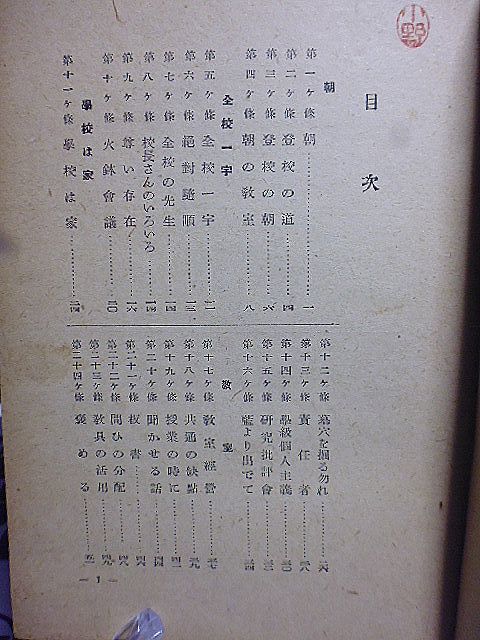 小野
目次
朝
第一ケ條 朝……一
第二ケ條 登校の道……四
第三ケ條 登校の朝……六
第四ケ條 朝の教室……八
全校一宇
第五ケ條 全校一宇……一一
第六ケ條 絕對隨順……一三
第七ケ條 全校の先生……一四
第八ケ條 校長さんのいろいろ……一四
第九ケ條 尊い存在……一六
第十ケ條 火鉢會議……二〇
學校は家
第十一ケ條 學校は家……二四
第十二ケ條 墓穴を掘る勿れ……二六
第十三ケ條 責任者……二八
第十四ケ條 學級個人主義……三〇
第十五ケ條 硏究批評會……三二
第十六ケ條 藍より出でて……三四
教室
第十七ケ條 教室經營……三七
第十八ケ條 共通の缺點……三九
第十九ケ條 授業の時に……四一
第二十ケ條 聞かせる話……四四
第二十一ケ條 板書……四六
第二十二ケ條 問ひの分配……四八
第二十三ケ條 教具の活用……四九
第二十四ケ條 褒める……五一
— 1 —